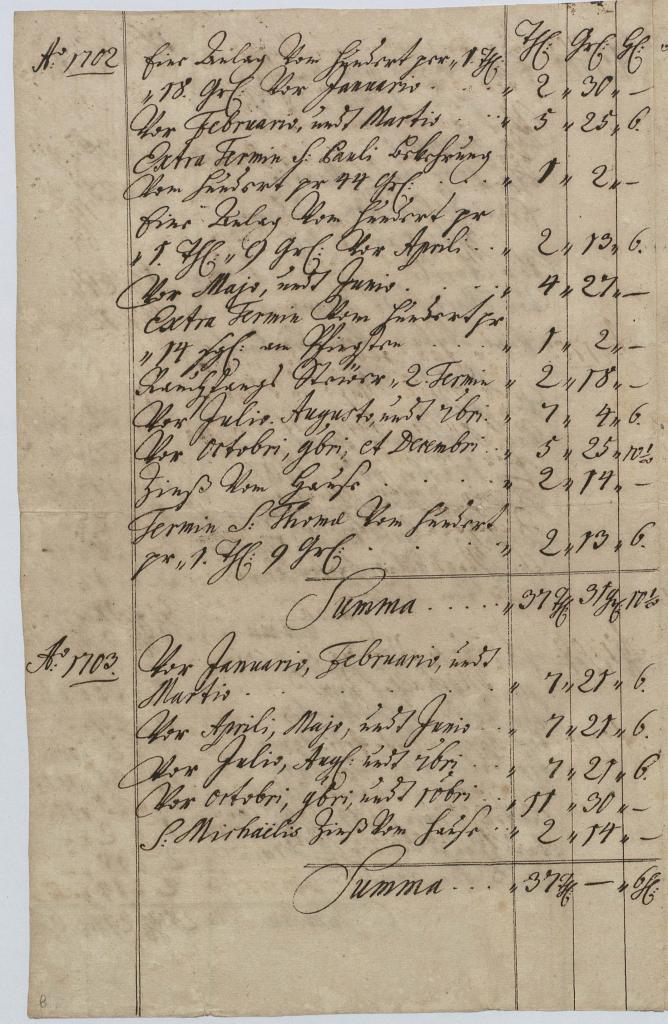 Thl: Grl: Hl:
Ao 1702 Eine Anlag Vom Hundert per „1. Thl:
„18. Grl: Vor Januario . . . „ 2 „ 30 „ —
Vor Februario, undt Martio . . „ 5 „ 25 „ 6.
Extra Termin S: Pauli Bekehrung
Vom Hundert pr 44 Grl: . . . „ 1 „ 2 „ —
Eine Anlag Vom Hundert pr
„ 1. Thl: „ 9 Grl: Vor Aprili . . „ 2 „ 13 „ 6.
Vor Majo, undt Junio . . . . „ 4 „ 27 „ —
Extra Termin Vom Hundert pr
„ 14 sgl: am Pfingsten . . . „ 1 „ 2 „ —
Steüer „ 2. Termin „ 2 „ 18 „ —
Vor Julio. Augusto, undt 7bri . . „ 7 „ 4 „ 6.
Vor Octobri, 9bri, et Decembri . . „ 5 „ 25 „ 10 1/2
Zinß Vom Hause . . . . „ 2 „ 14 „ —
Termin S: Thomæ Vom Hundert
pr „ 1. Thl: 9 Grl: . . . . „ 2 „ 13 „ 6.
Summa . . . . . „ 37 Thl: 31 Grl 10 1/2
Ao 1703. Vor Januario, Februario, undt
Martio . . . . . . „ 7 „ 21 „ 6.
Vor Aprili, Majo, undt Junio . . „ 7 „ 21 „ 6.
Vor Julio, Augl: undt 7bri . . „ 7 „ 21 „ 6.
Vor Octobri, 9bri, undt 10bri . . „ 11 „ 30 „ —
S: Michaëlis Zinß Vom Hause . . „ 2 „ 14 „ —
Summa . . . . „ 37 Thl: — „ 6 Hl:
8